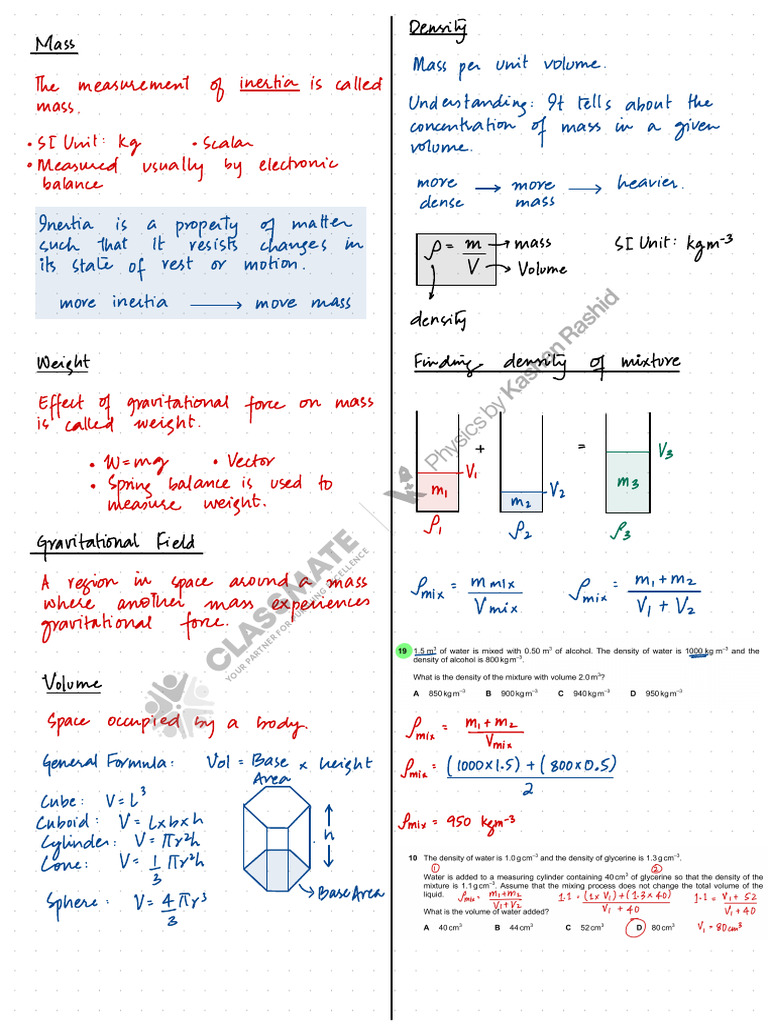 Mass
The measurement of inertia is called
mass.
• SI Unit: kg • Scalar
• Measured usually by electronic
balance
Inertia is a property of matter
such that it resists changes in
its state of rest or motion.
more inertia → move mass
Weight
Effect of gravitational force on mass
is called weight.
• W=mg • Vector
• Spring balance is used to
measure weight.
Gravitational Field
A region in space around a mass
where another mass experiences
gravitational force.
Volume
Space occupied by a body.
General Formula: Vol = Base Area × height
Cube: V=L³
Cuboid: V= L×b×h
Cylinder: V=πr²h
Cone: V= 1/3 πr²h
Sphere: V= 4/3 πr³
h
Base Area
Density
Mass per unit volume.
Understanding: It tells about the
concentration of mass in a given
volume.
more dense → more mass → heavier.
ρ = m/V
mass
Volume
density
SI Unit: kgm⁻³
Finding density of mixture
m₁ V₁ + m₂ V₂ = m₃ V₃
ρ₁ ρ₂ ρ₃
ρmix = m mix / V mix ρmix = m₁+m₂ / V₁+V₂
19 1.5 m³ of water is mixed with 0.50 m³ of alcohol. The density of water is 1000 kg m⁻³ and the
density of alcohol is 800 kg m⁻³.
What is the density of the mixture with volume 2.0 m³?
A 850 kg m⁻³ B 900 kg m⁻³ C 940 kg m⁻³ D 950 kg m⁻³
ρmix = m₁+m₂ / Vmix
ρmix = (1000×1.5)+(800×0.5) / 2
ρmix = 950 kgm⁻³
10 The density of water is 1.0 g cm⁻³ and the density of glycerine is 1.3 g cm⁻³.
① ②
Water is added to a measuring cylinder containing 40 cm³ of glycerine so that the density of the
mixture is 1.1 g cm⁻³. Assume that the mixing process does not change the total volume of the
liquid.
ρmix = m₁+m₂ / V₁+V₂ 1.1 = (1×V₁)+(1.3×40) / V₁+40 1.1 = V₁+52 / V₁+40
What is the volume of water added?
A 40 cm³ B 44 cm³ C 52 cm³ D 80 cm³ V₁=80cm³
CLASSMATE
YOUR PARTNER FOR PURSUING EXCELLENCE
Physics by Kashan Rashid